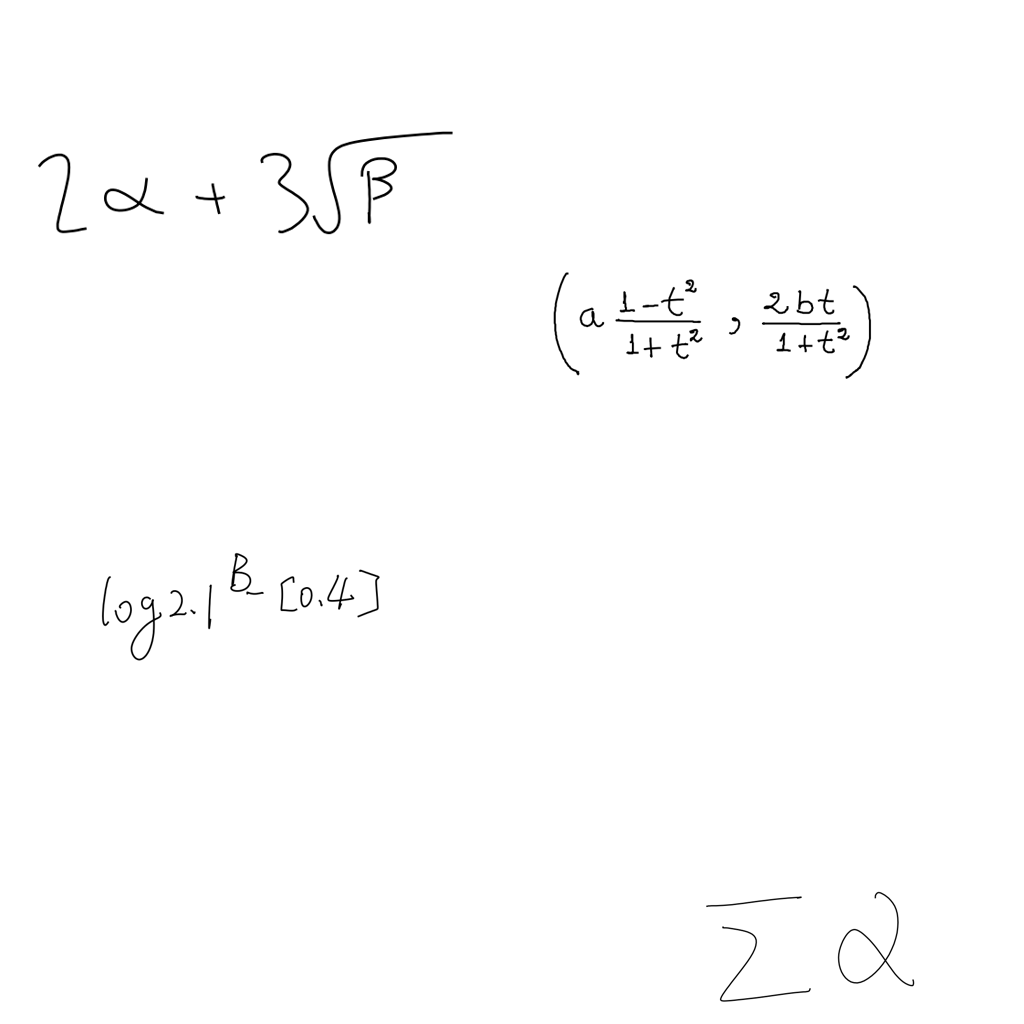 2α + 3√β
(a (1-t²)/(1+t²) , (2bt)/(1+t²))
log2.1^B- [0.4]
∑ α